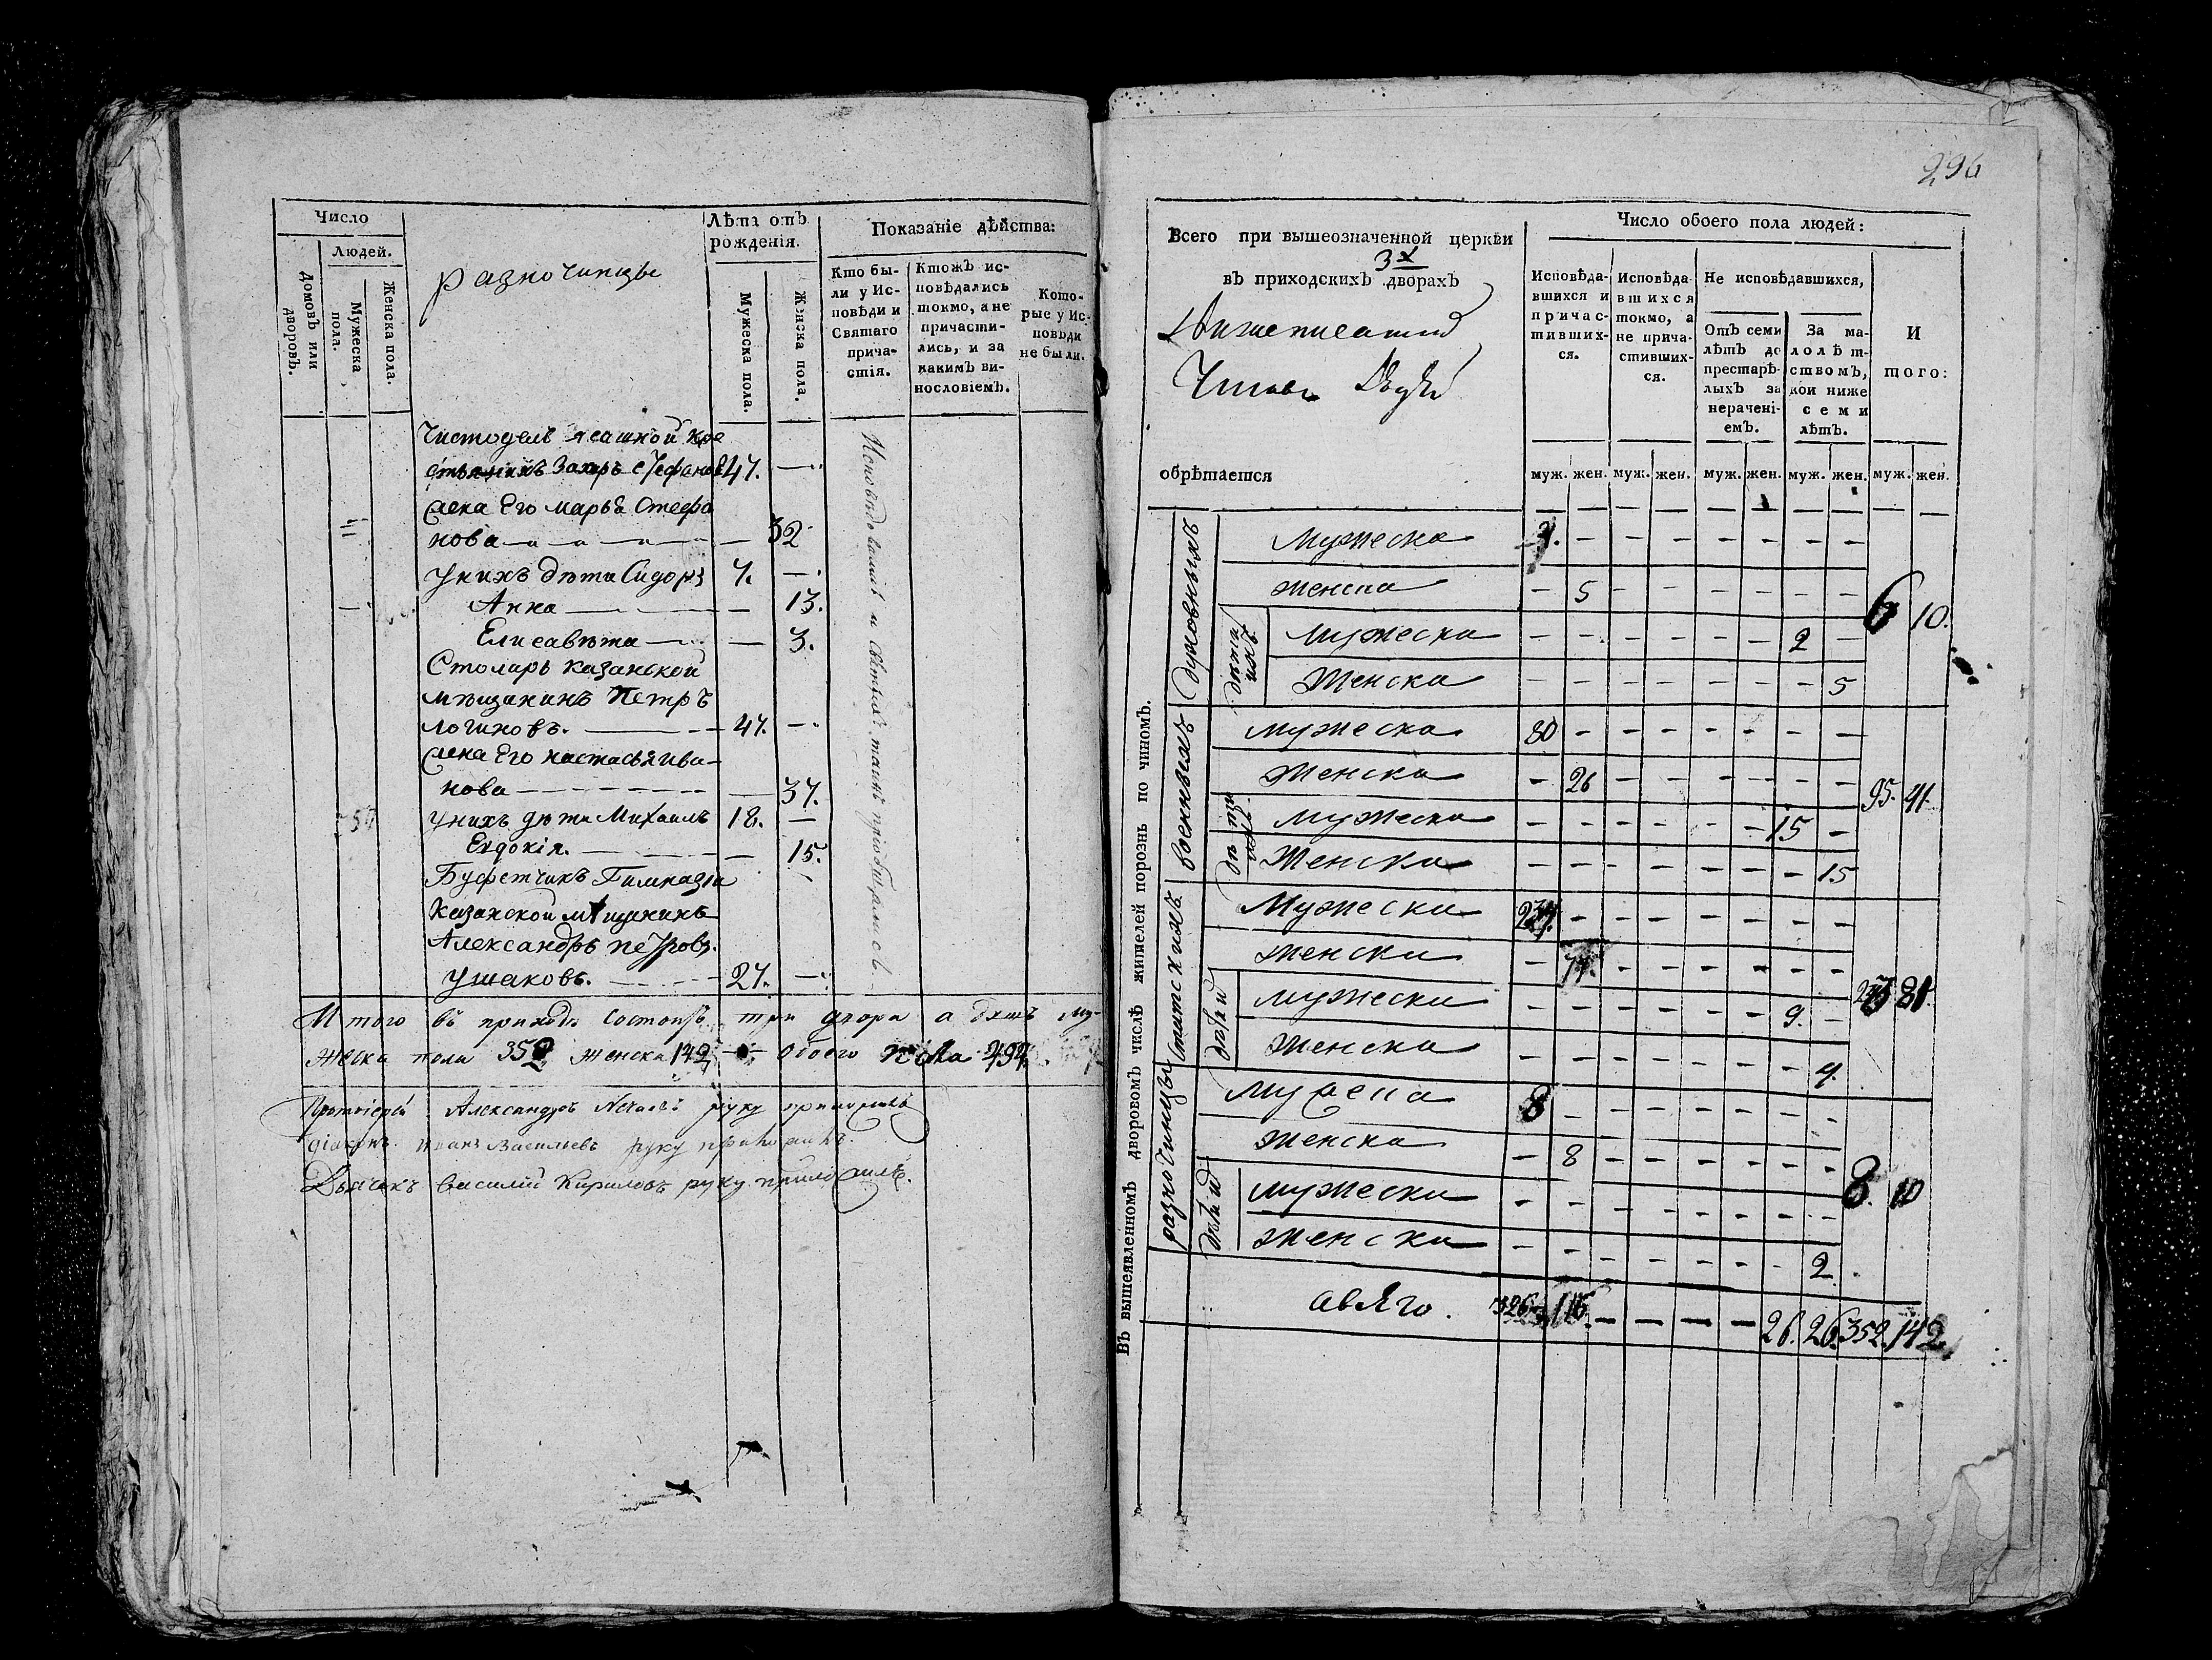 Число
Людей.
Домовъ или дворовъ.
Мужеска пола.
Женска пола.
разночинцы
Лѣта отъ рожденія.
Мужеска пола.
Женска пола.
Показаніе дѣйства:
Кто были у Исповѣди и Святаго причастія.
Ктожъ исповѣдались токмо, а не причастились, и за какимъ винословіемъ.
Которые у Исповѣди не были.
Чистодель ясашной кре
стьянинъ Захаръ Стефановъ 47. —
жена Его марья Стефа
нова — 32
у нихъ дѣти Сидоръ 7. —
Анна — 13.
Елисавѣта — 3.
Столяръ казанской
мѣщанинъ Петръ
логиновъ. 47. —
жена Его настасья ива-
нова — 37.
у нихъ дѣти Михаилъ 18. —
Евдокія. — 15.
Буфетчикъ Гимназіи
казанской мѣщанинъ
Александръ петровъ.
ушаковъ. 27. —
Исповѣдовались и святыхъ таинъ пріобщались
Итого въ приходѣ состоитъ три двора а душъ му-
жеска пола 352 женска 142 — обоего пола 494
Протоіерей Александръ Нечаевъ руку приложилъ
діаконъ Иванъ Васильевъ руку приложилъ
Дьячекъ василій Кириловъ руку приложилъ.
296
Всего при вышеозначенной церкви
3х
въ приходскихъ дворахъ
обрѣтается
Число обоего пола людей:
Исповѣдавшихся и причастившихся.
Исповѣдавшихся токмо, а не причастившихся.
Не исповѣдавшихся,
Отъ семи лѣтъ до престарѣлыхъ за нераченіемъ.
За малолѣтствомъ, кои ниже семи лѣтъ.
И того:
муж. жен. муж. жен. муж. жен. муж. жен. муж. жен.
Въ вышеявленномъ дворовомъ числѣ жителей порознь по чиномъ.
духовныхъ
Мужеска — — — — — — —
женска — 5 — — — — — — 6 10.
дѣтей ихъ
мужеска — — — — — — 2 —
Женска — — — — — — — 5
военныхъ
мужеска 80 — — — — — — —
Женска — 26 — — — — — — 95. 41.
мужеска — — — — — — 15 —
Женска — — — — — — — 15
статскихъ
Мужеска — — — — — — —
женска — 77. — — — — — — 243 81.
дѣтей
мужеска — — — — — — 9. —
женска — — — — — — — 4.
разночинцы
мужеска 8 — — — — — — —
женска — 8 — — — — — — 8. 10
дѣтей
мужеска — — — — — — — —
женска — — — — — — — 2
авсего. 326. 116. — — — — 26. 26. 352. 142.